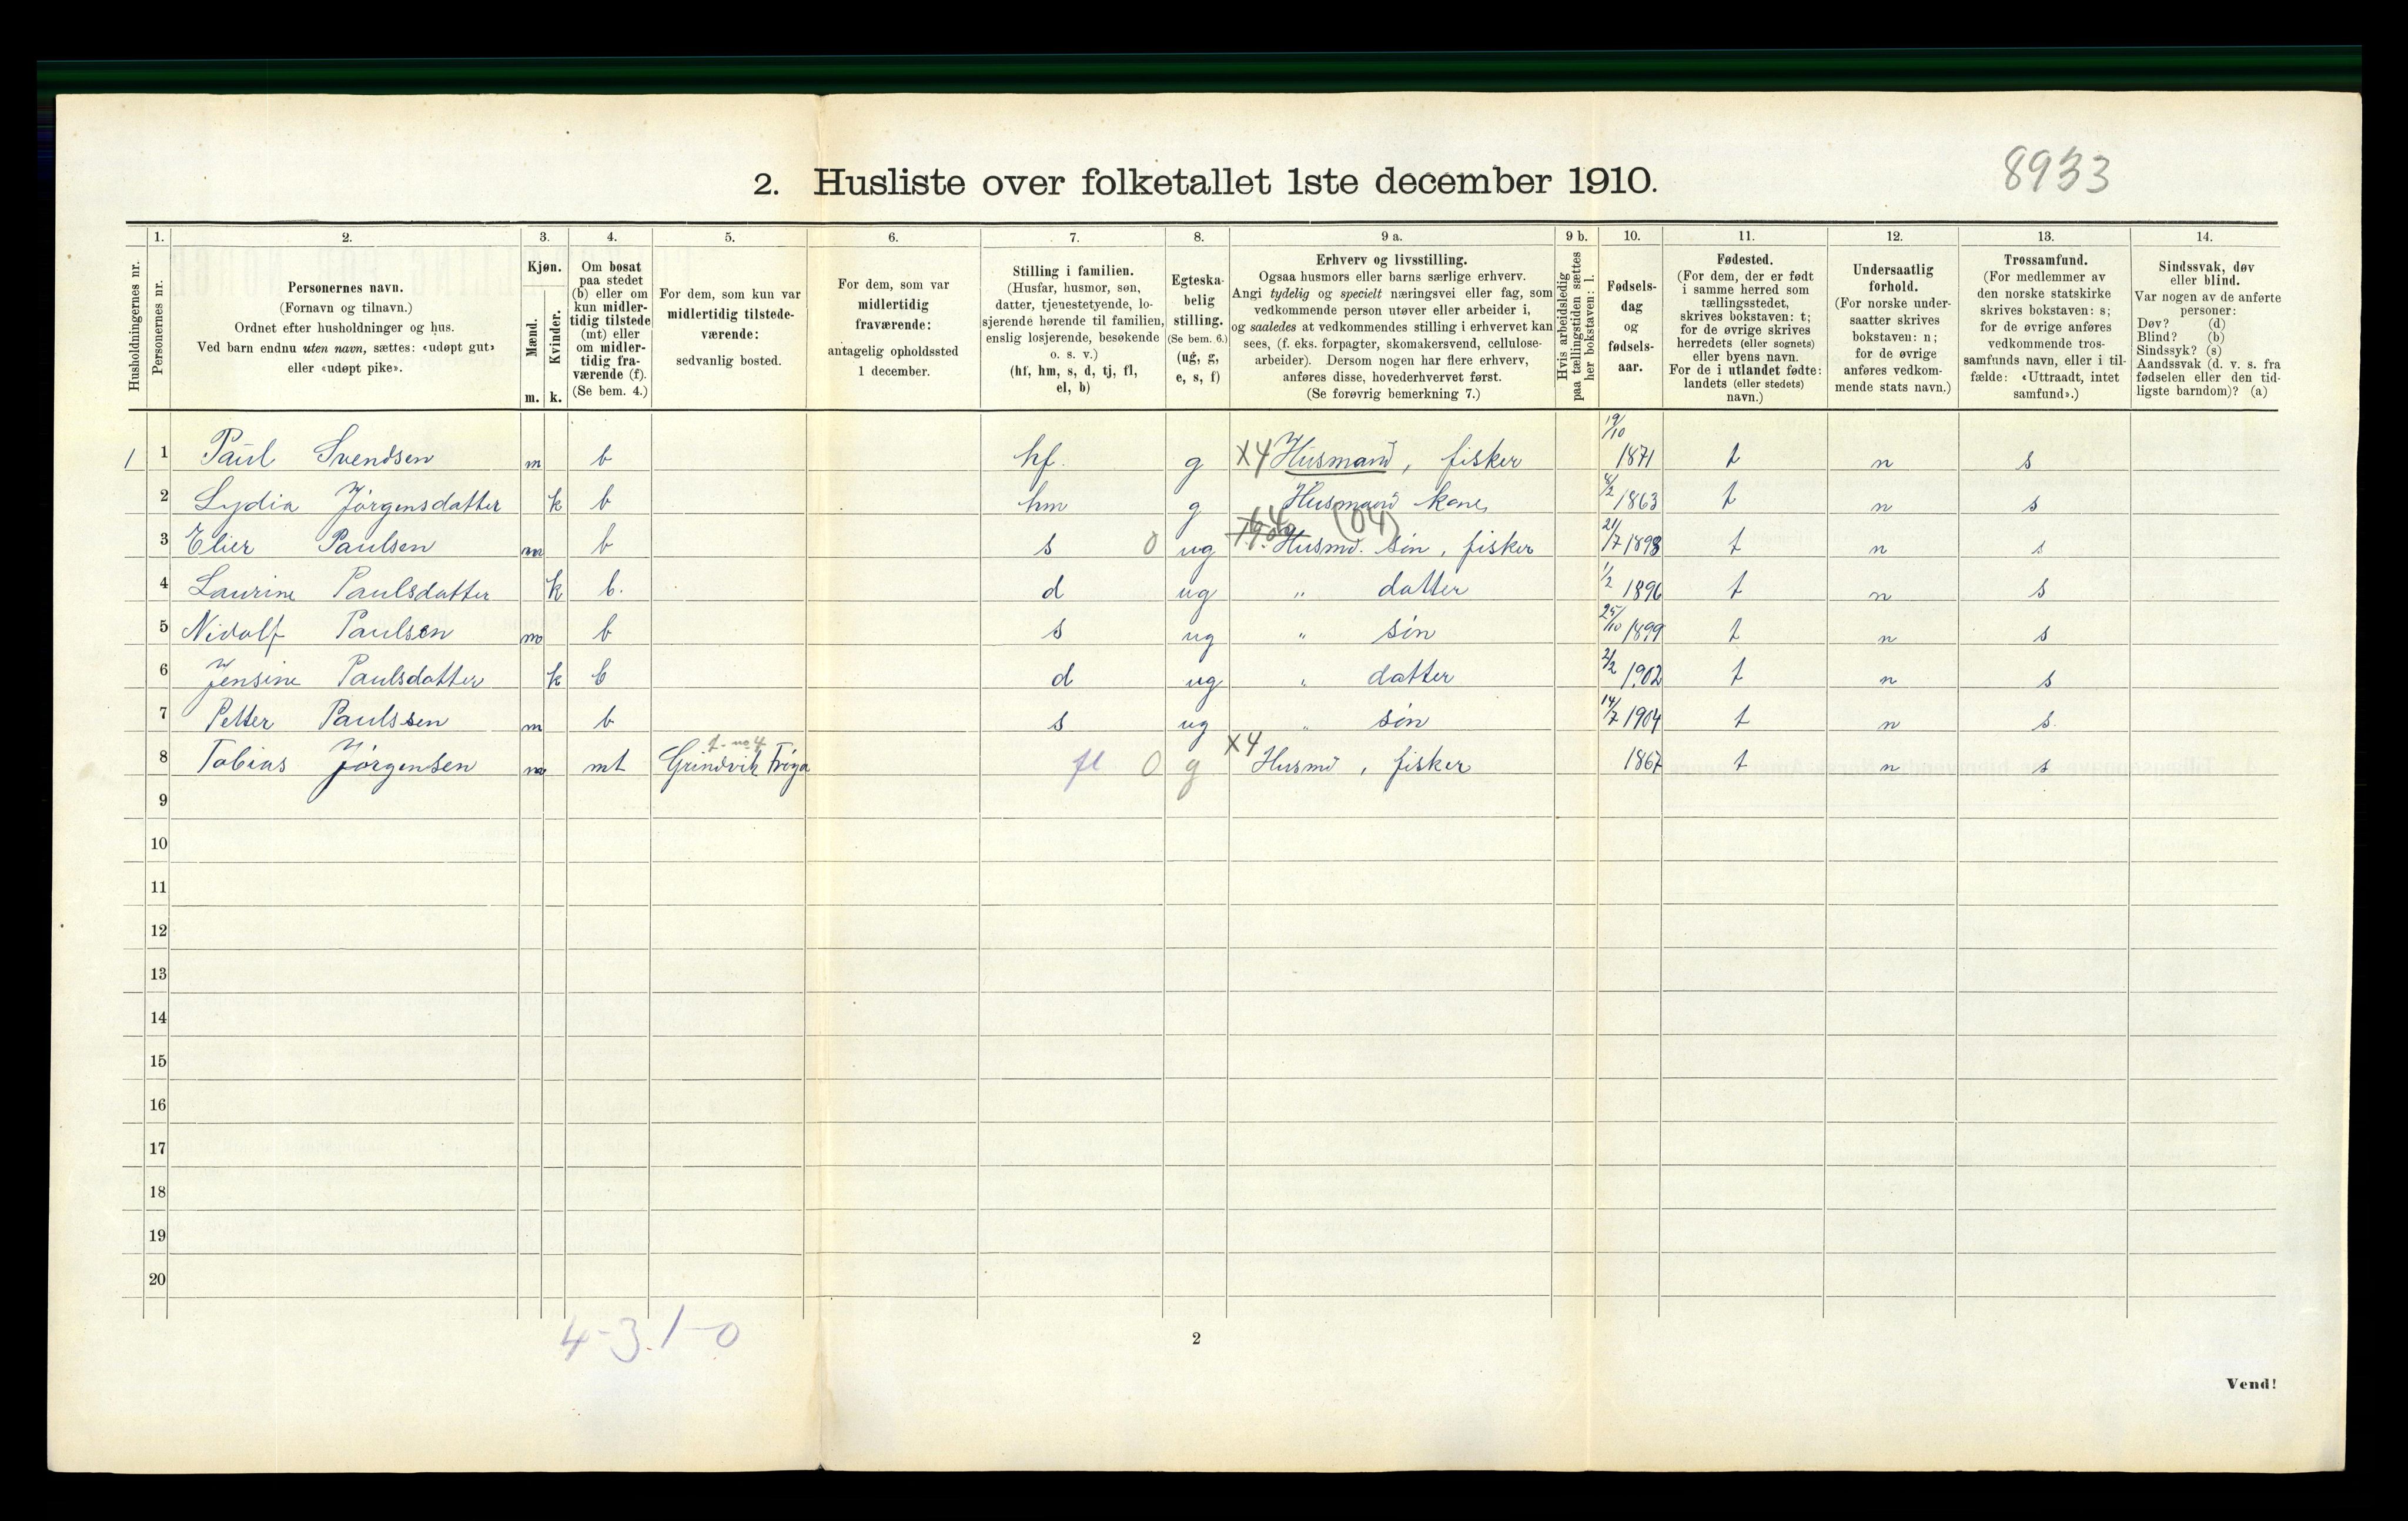 8933
2. Husliste over folketallet 1ste december 1910.
Husholdningernes nr.
1.
Personernes nr.
2.
Personernes navn.
(Fornavn og tilnavn.)
Ordnet efter husholdninger og hus.
Ved barn endnu uten navn, sættes: «udøpt gut»
eller «udøpt pike».
3.
Kjøn.
Mænd.
Kvinder.
m. k.
4.
Om bosat
paa stedet
(b) eller om
kun midler-
tidig tilstede
(mt) eller
om midler-
tidig fra-
værende (f).
(Se bem. 4.)
5.
For dem, som kun var
midlertidig tilstede-
værende:
sedvanlig bosted.
6.
For dem, som var
midlertidig
fraværende:
antagelig opholdssted
1 december.
7.
Stilling i familien.
(Husfar, husmor, søn,
datter, tjenestetyende, lo-
sjerende hørende til familien,
enslig losjerende, besøkende
o. s. v.)
(hf, hm, s, d, tj, fl,
el, b)
8.
Egteska-
belig
stilling.
(Se bem. 6.)
(ug, g,
e, s, f)
9 a.
Erhverv og livsstilling.
Ogsaa husmors eller barns særlige erhverv.
Angi tydelig og specielt næringsvei eller fag, som
vedkommende person utøver eller arbeider i,
og saaledes at vedkommendes stilling i erhvervet kan
sees, (f. eks. forpagter, skomakersvend, cellulose-
arbeider). Dersom nogen har flere erhverv,
anføres disse, hovederhvervet først.
(Se forøvrig bemerkning 7.)
9 b.
Hvis arbeidsledig
paa tællingstiden sættes
her bokstaven: l.
10.
Fødsels-
dag
og
fødsels-
aar.
11.
Fødested.
(For dem, der er født
i samme herred som
tællingsstedet,
skrives bokstaven: t;
for de øvrige skrives
herredets (eller sognets)
eller byens navn.
For de i utlandet fødte:
landets (eller stedets)
navn.)
12.
Undersaatlig
forhold.
(For norske under-
saatter skrives
bokstaven: n;
for de øvrige
anføres vedkom-
mende stats navn.)
13.
Trossamfund.
(For medlemmer av
den norske statskirke
skrives bokstaven: s;
for de øvrige anføres
vedkommende tros-
samfunds navn, eller i til-
fælde: «Uttraadt, intet
samfund».)
14.
Sindssvak, døv
eller blind.
Var nogen av de anførte
personer:
Døv? (d)
Blind? (b)
Sindssyk? (s)
Aandssvak (d. v. s. fra
fødselen eller den tid-
ligste barndom)? (a)
1 1 Paul Svendsen m b hf. g X4 Husmand, fisker 19/10 1871 t n s
2 Lydia Jørgensdatter k b hm g Husmand kone 8/2 1863 t n s
3 Elier Paulsen m b s 0 ug (04) Husmd. søn, fisker 21/7 1893 t n s
4 Laurine Paulsdatter k b. d ug " datter 1/2 1896 t n s
5 Nidolf Paulsen m b s ug " søn 25/10 1899 t n s
6 Jensine Paulsdatter k b d ug " datter 2/2 1902 t n s
7 Petter Paulssen m b s ug " søn 14/7 1904 t n s.
8 Tobias Jørgensen m mt Grindvik Frøya fl 0 g X4 Husmd, fisker 1867 t n s
9
10
11
12
13
14
15
16
17
18
19
20
4-3. 1-0
2
Vend!